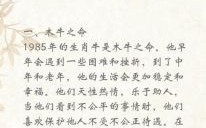 一、木牛之命
1985年的生肖牛是木牛之命。他早
年会遇到一些困难和挫折，到了中
年和老年，他的生活会更加稳定和
幸福。他们天性热情，乐于助人，
当他们看到不公平的事情时，他们喜
欢保护他人不受不公正待遇。在